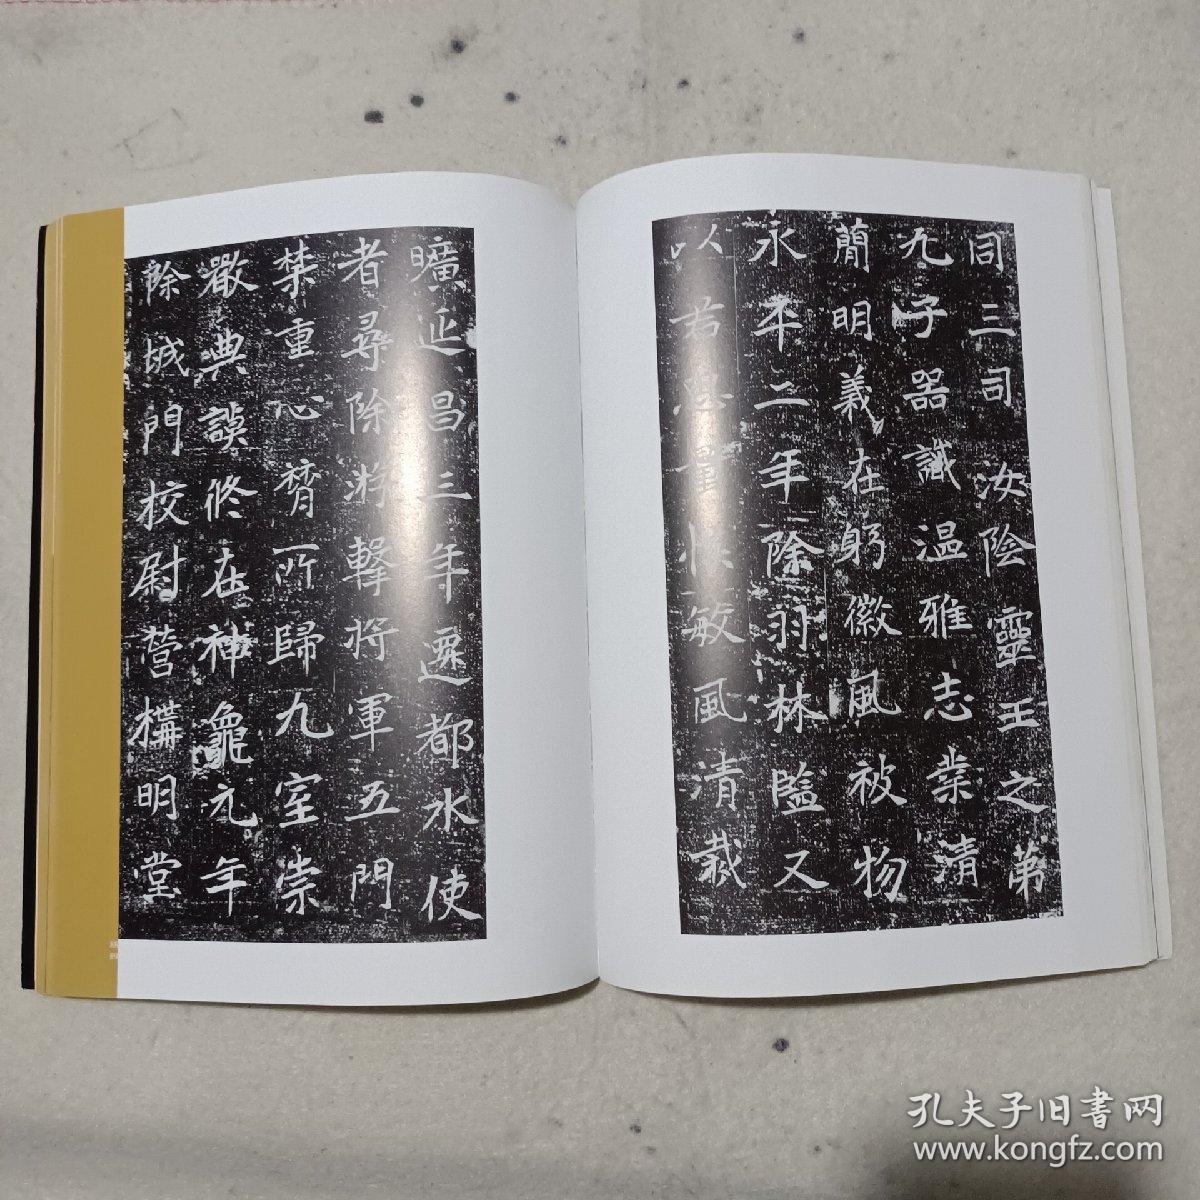 同三司汝陰靈王之第
九子器識温雅志業清
蕳明義在躬徽風被物
永平二年除羽林監又
以君思量敏風清裁
曠延昌三年遷都水使
者尋除游擊將軍五門
禁重心膂所歸九室崇
嚴典謨攸在神龜元年
除城門校尉營構明堂
孔夫子旧書网
www.kongfz.com